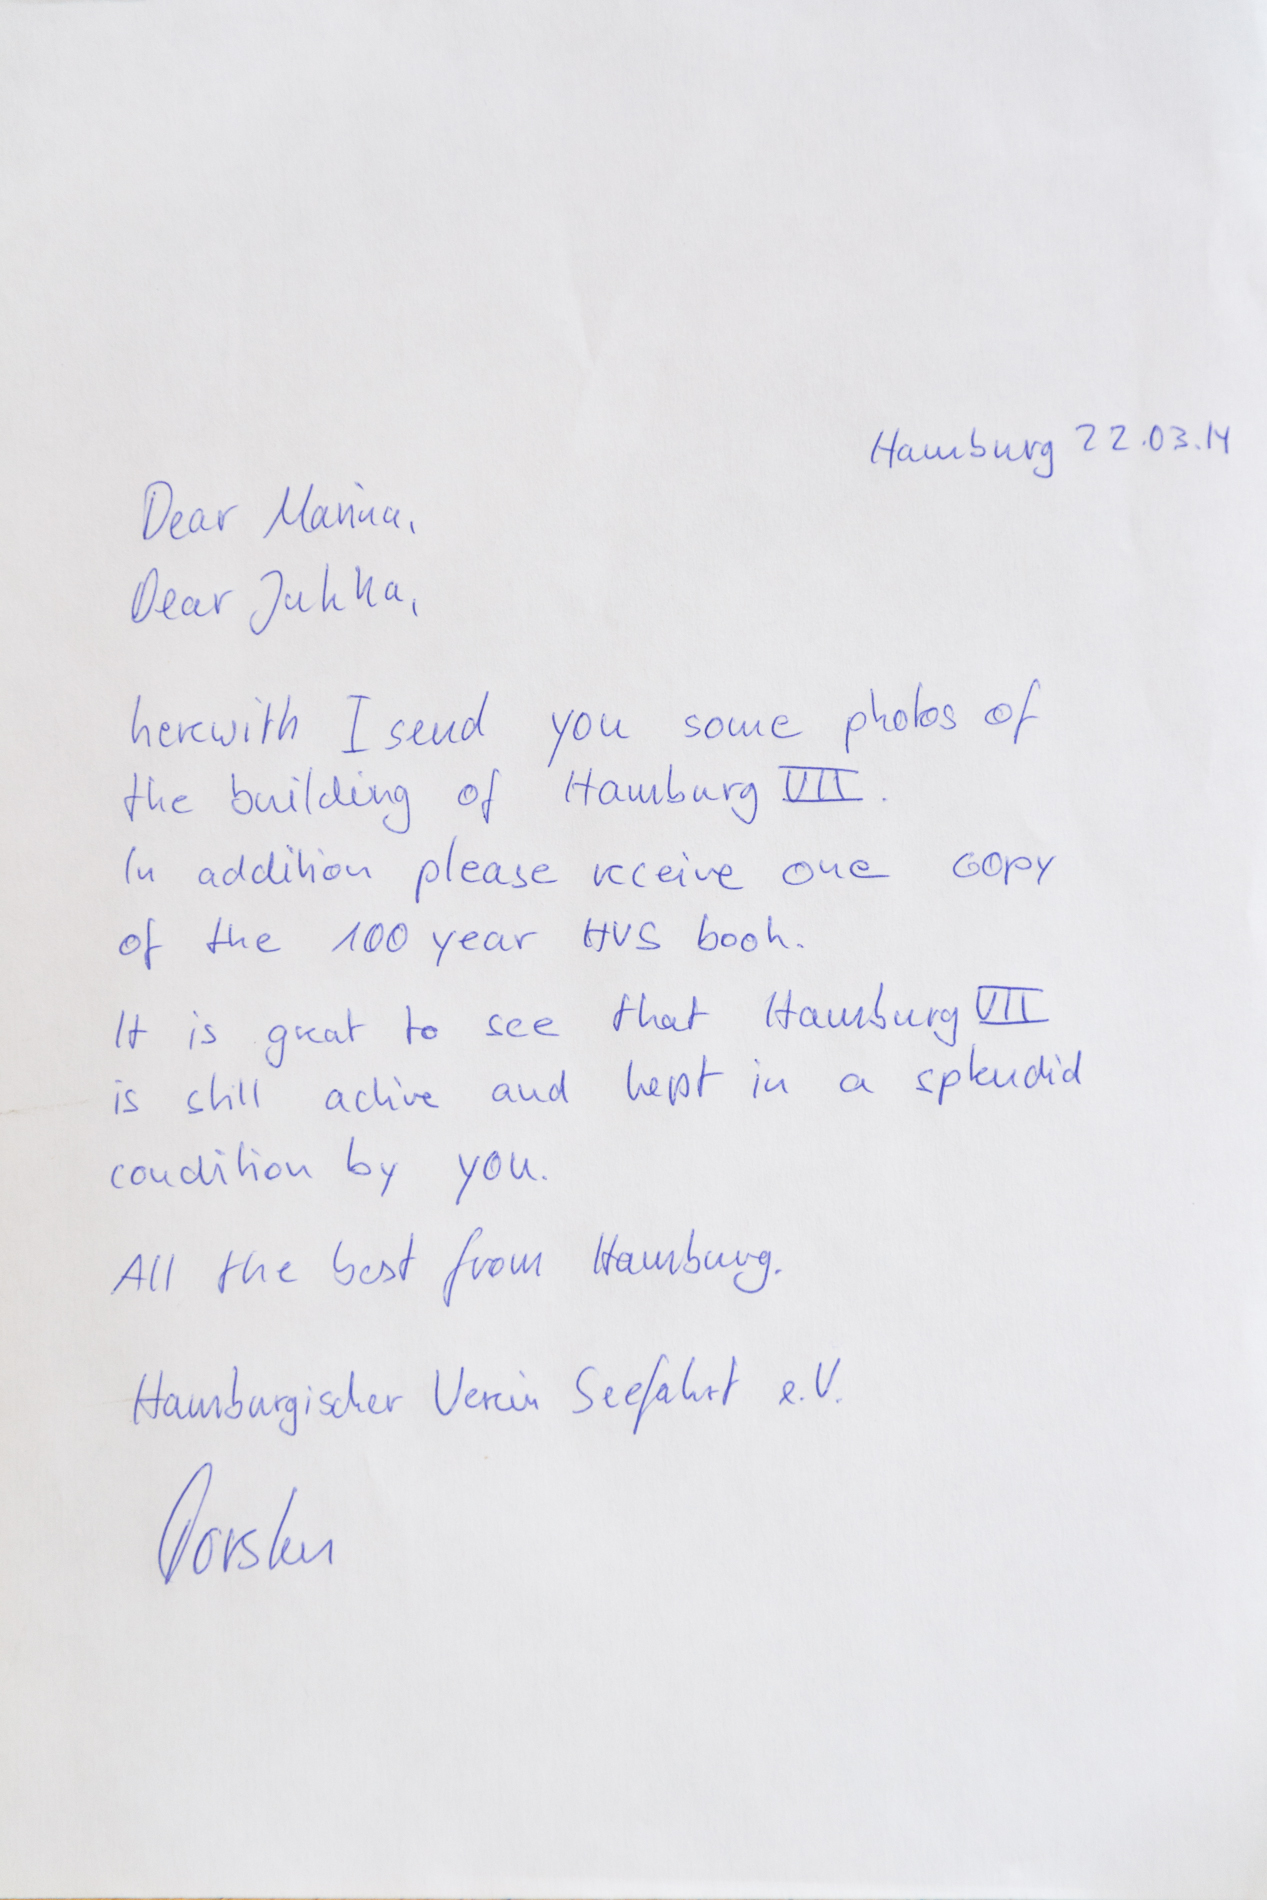 Hamburg 22.03.14
Dear Marina,
Dear Jukka,
herewith I send you some photos of
the building of Hamburg VII.
In addition please receive one copy
of the 100 year HVS book.
It is great to see that Hamburg VII
is still active and kept in a splendid
condition by you.
All the best from Hamburg.
Hamburgischer Verein Seefahrt e.V.
Torsten